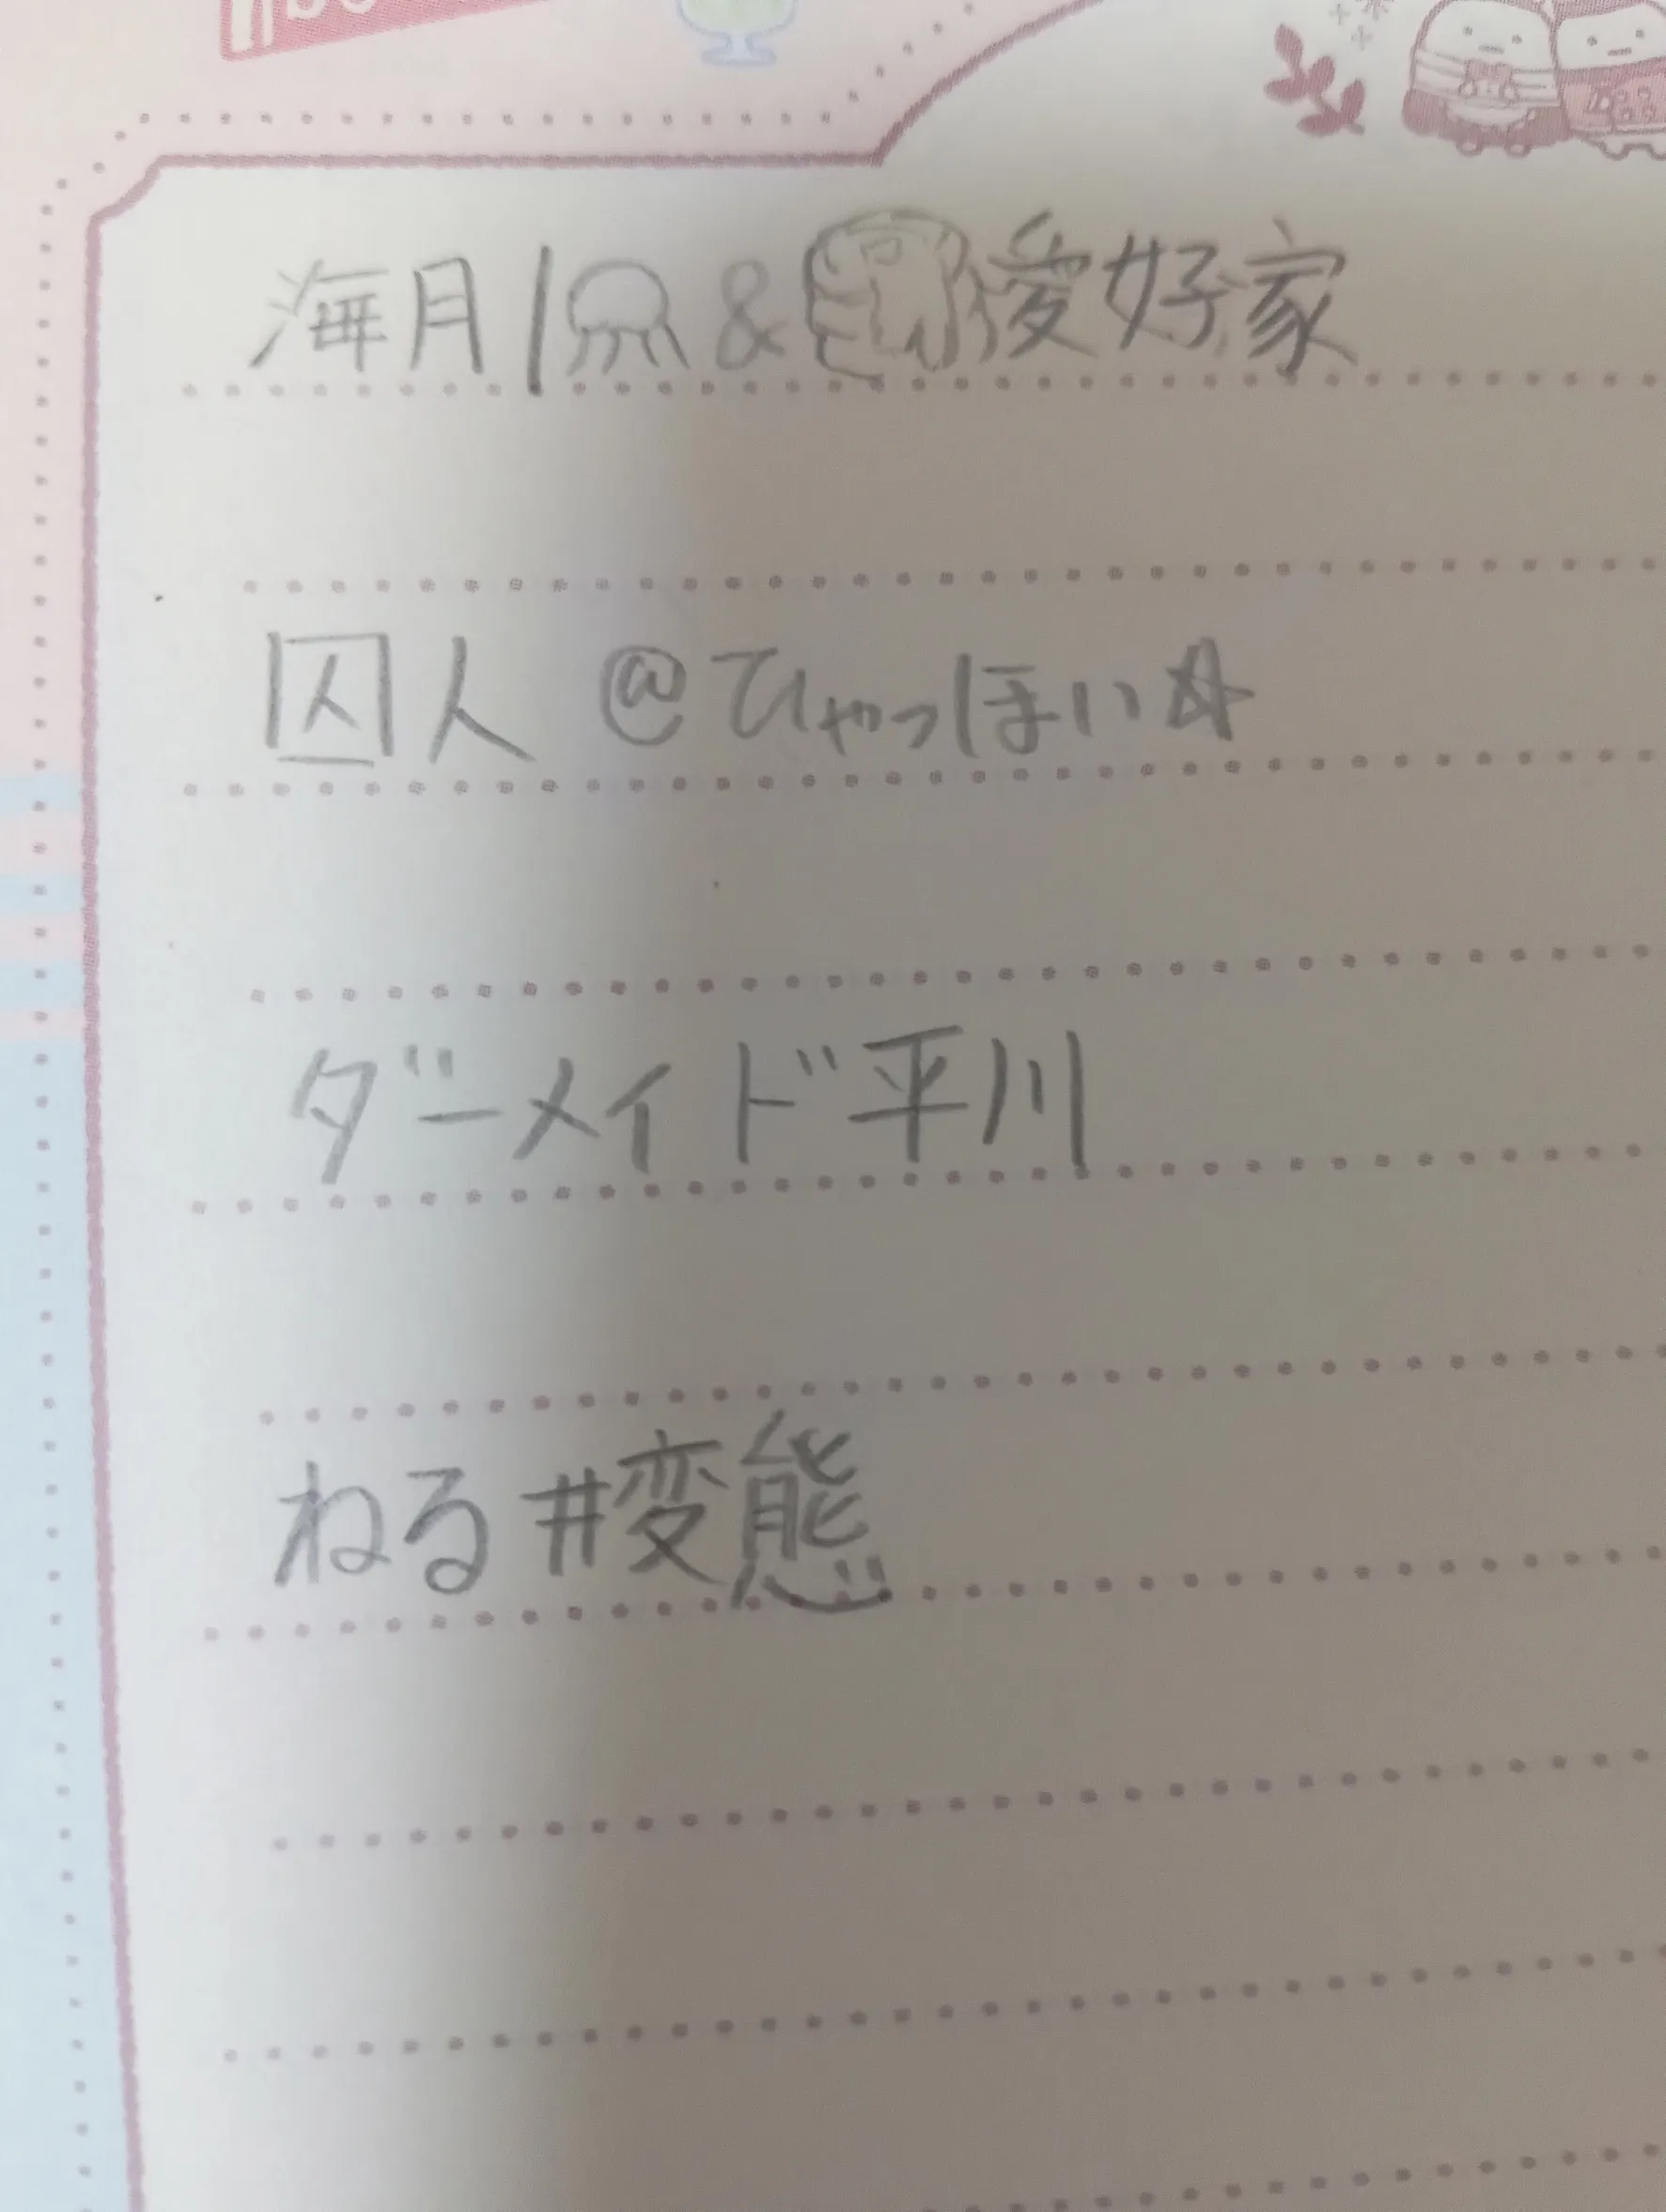 海月|&愛好家
囚人@ひゃっほい☆
ダーメイド平川
ねる#変態